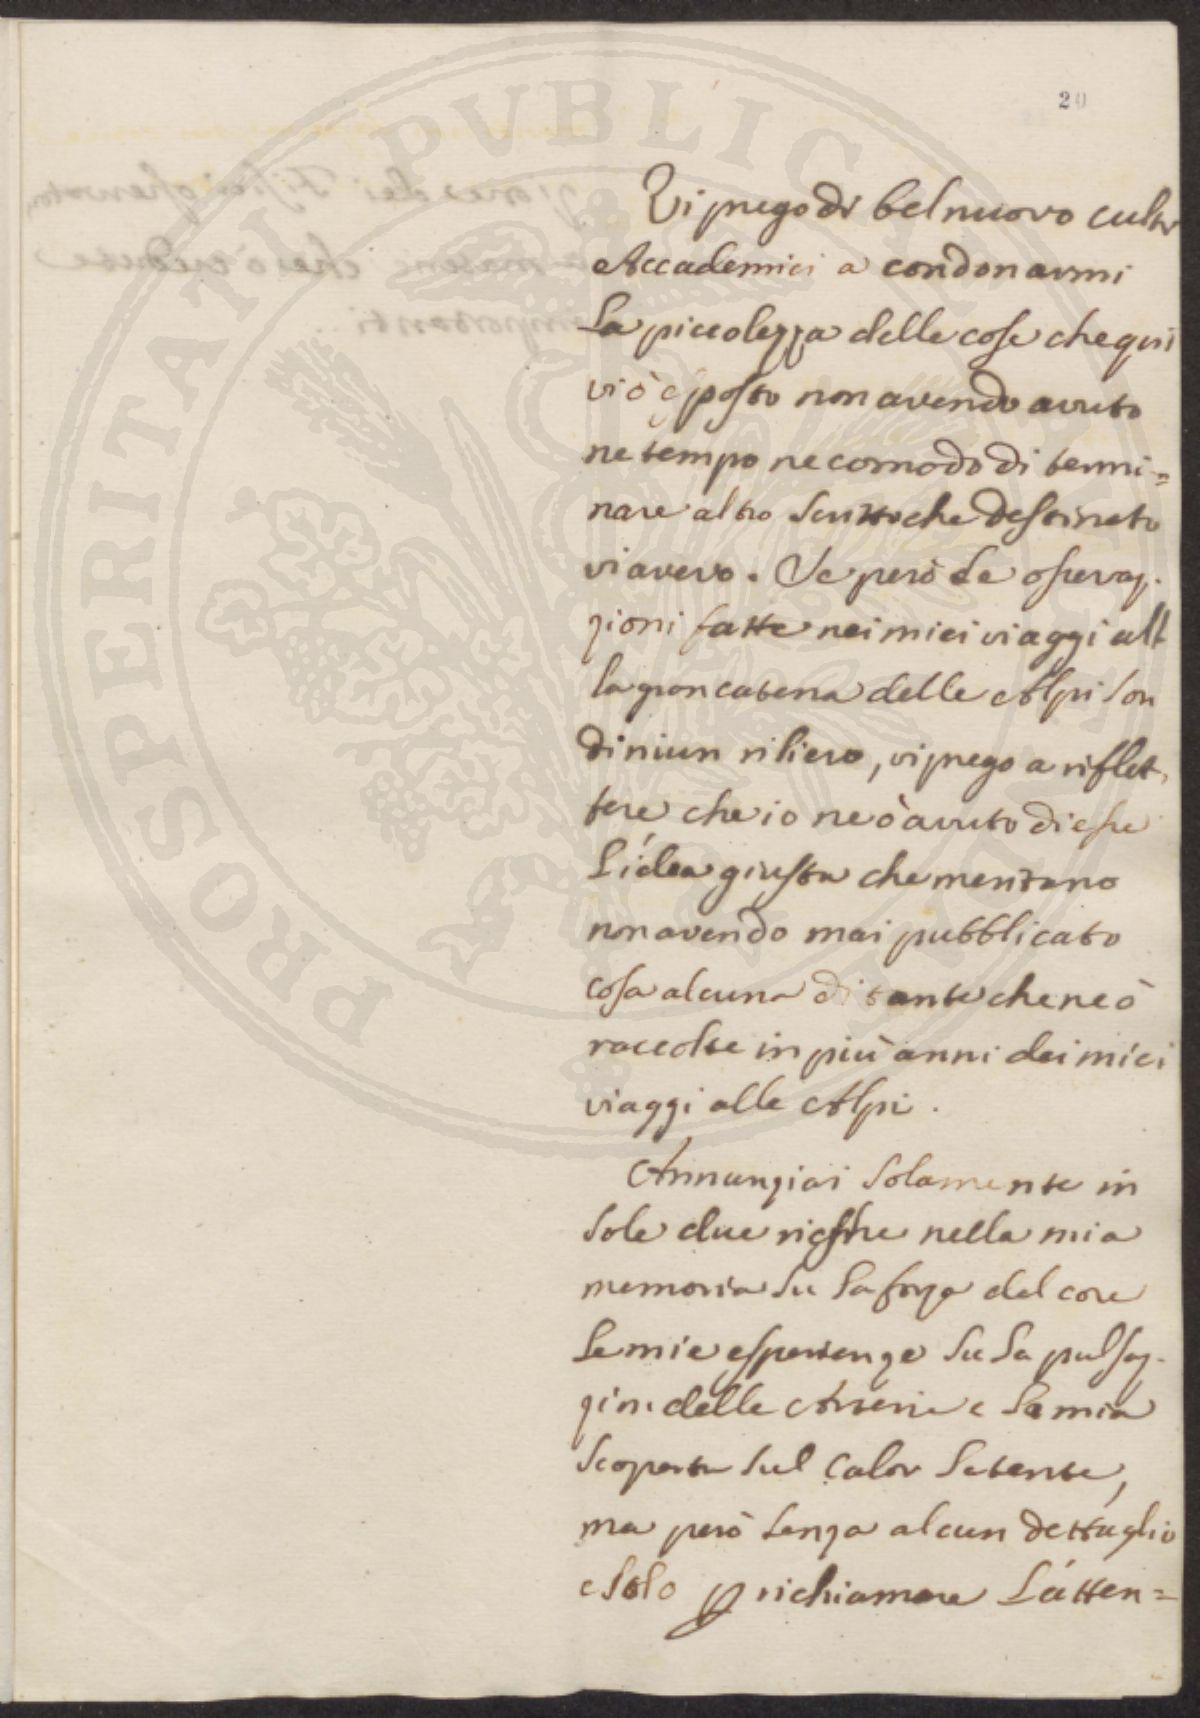 20
Vi prego di bel nuovo culti
Accademici a condonarmi
la piccolezza delle cose che quì
vi ò esposto non avendo avuto
ne tempo ne comodo di termi=
nare altro scritto che destinato
vi avevo. Se però le osservaz-
zioni fatte nei miei viaggi all
la gran catena delle Alpi son
di niun rilievo, vi prego a riflet,
tere che io ne ò avuto di esse
l'idea giusta che meritano
non avendo mai pubblicato
cosa alcuna di tante che ne ò
raccolte in più anni dei miei
viaggi alle Alpi.
Annunziai solamente in
sole due righe nella mia
memoria su la forza del core
le mie esperienze su la pulsaz-
zion delle Arterie e la mia
scoperta sul Calor latente,
ma però senza alcun dettaglio
e solo p richiamare l'atten=
PROSPERITATI PUBLICAE AUGENDAE